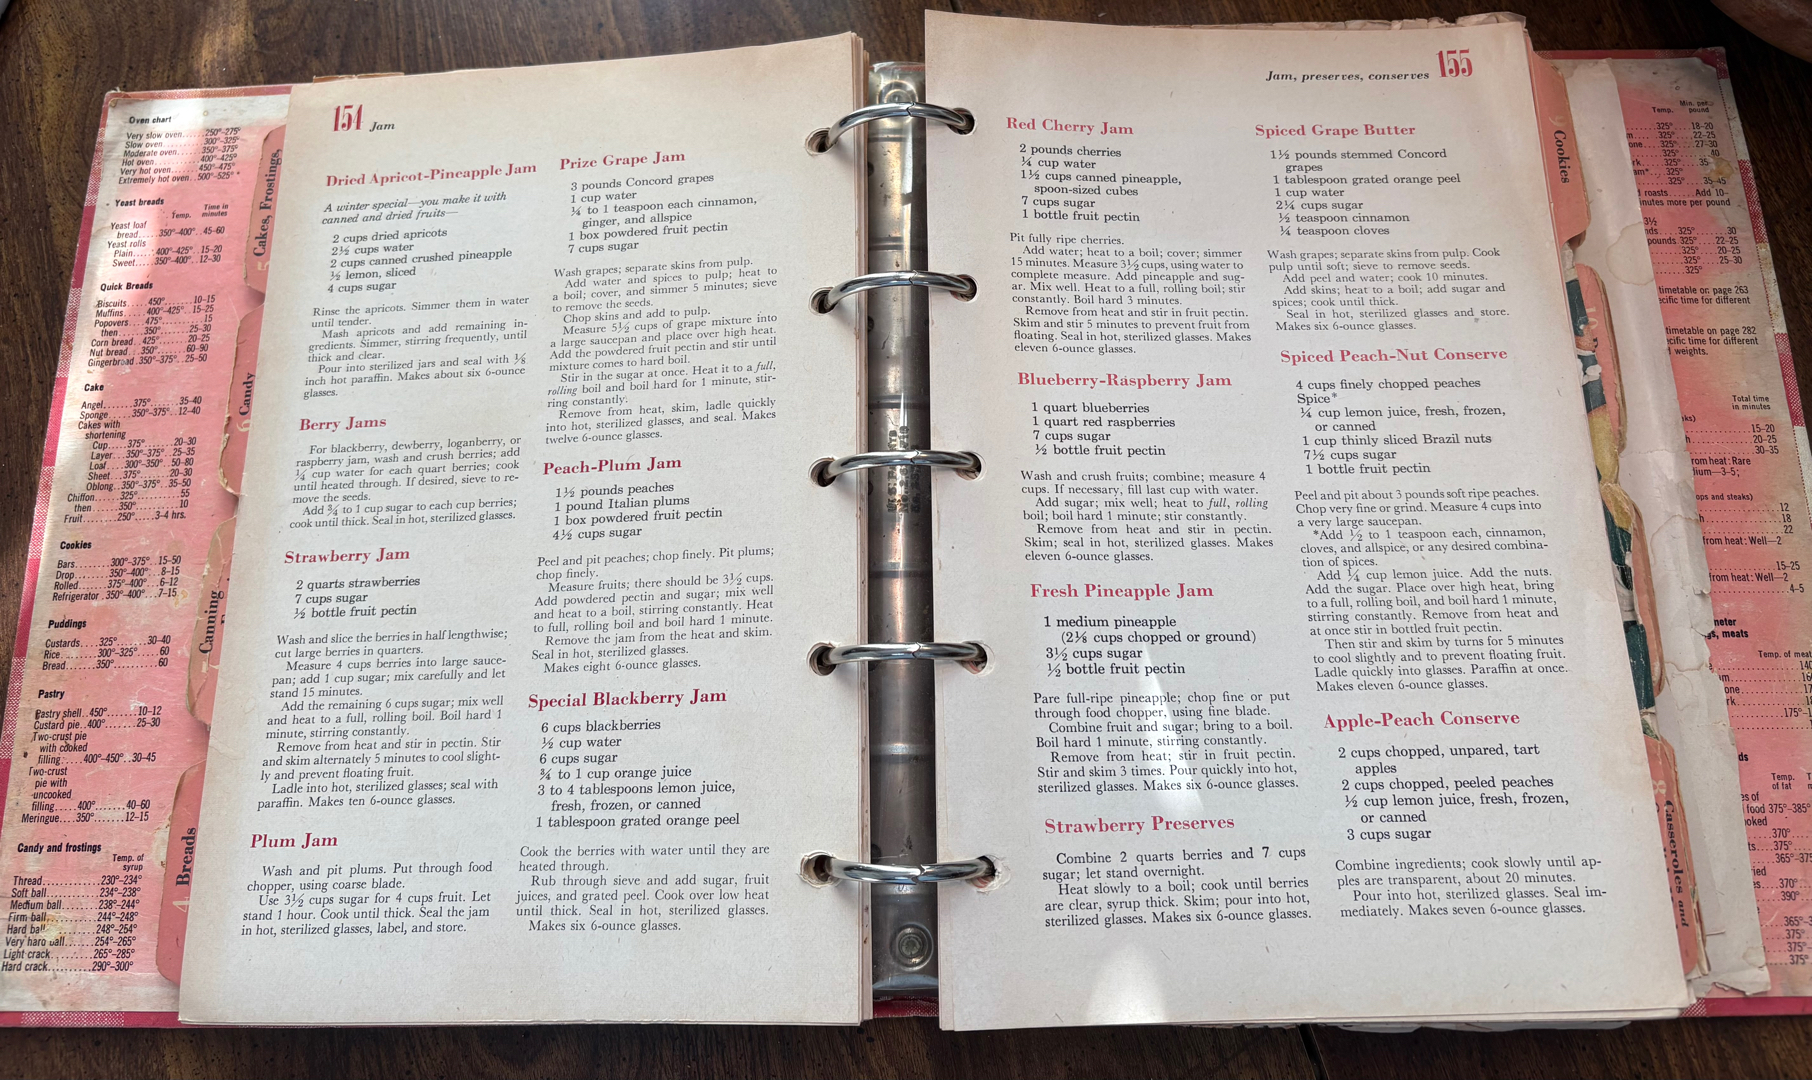 Oven chart
Very slow oven......250°-275°
Slow oven............300°-325°
Moderate oven......350°-375°
Hot oven.............400°-425°
Very hot oven.......450°-475°
Extremely hot oven..500°-525°
Yeast breads
Temp. Time in minutes
Yeast loaf
bread......350°-400°..45-60
Yeast rolls
Plain......400°-425°..15-20
Sweet.....350°-400°..12-30
Quick Breads
Biscuits.....450°........10-15
Muffins.....400°-425°..15-25
Popovers....475°..........15
then.......350°........25-30
Corn bread..425°........20-25
Nut bread...350°........60-90
Gingerbread.350°-375°..25-50
Cake
Angel........375°........35-40
Sponge......350°-375°..12-40
Cakes with
shortening
Cup........375°........20-30
Layer......350°-375°..25-35
Loaf.......300°-350°..50-80
Sheet......375°........20-30
Oblong....350°-375°..35-50
Chiffon......325°..........55
then.......350°..........10
Fruit.........250°.....3-4 hrs.
Cookies
Bars.........300°-375°..15-50
Drop.........350°-400°...8-15
Rolled.......375°-400°...6-12
Refrigerator..350°-400°...7-15
Puddings
Custards.....325°........30-40
Rice..........300°-325°.....60
Bread........350°...........60
Pastry
Pastry shell..450°........10-12
Custard pie..400°........25-30
Two-crust pie
with cooked
filling......400°-450°..30-45
Two-crust
pie with
uncooked
filling......400°........40-60
Meringue....350°........12-15
Candy and frostings
Temp. of
syrup
Thread..............230°-234°
Soft ball............234°-238°
Medium ball........238°-244°
Firm ball...........244°-248°
Hard ball...........248°-254°
Very hard ball......254°-265°
Light crack.........265°-285°
Hard crack..........290°-300°
Cakes, Frostings,
5
Candy
6
Canning
7
Breads
4
154 Jam
Dried Apricot-Pineapple Jam
A winter special—you make it with
canned and dried fruits—
2 cups dried apricots
2½ cups water
2 cups canned crushed pineapple
½ lemon, sliced
4 cups sugar
Rinse the apricots. Simmer them in water
until tender.
Mash apricots and add remaining in-
gredients. Simmer, stirring frequently, until
thick and clear.
Pour into sterilized jars and seal with ⅛
inch hot paraffin. Makes about six 6-ounce
glasses.
Berry Jams
For blackberry, dewberry, loganberry, or
raspberry jam, wash and crush berries; add
¼ cup water for each quart berries; cook
until heated through. If desired, sieve to re-
move the seeds.
Add ¾ to 1 cup sugar to each cup berries;
cook until thick. Seal in hot, sterilized glasses.
Strawberry Jam
2 quarts strawberries
7 cups sugar
½ bottle fruit pectin
Wash and slice the berries in half lengthwise;
cut large berries in quarters.
Measure 4 cups berries into large sauce-
pan; add 1 cup sugar; mix carefully and let
stand 15 minutes.
Add the remaining 6 cups sugar; mix well
and heat to a full, rolling boil. Boil hard 1
minute, stirring constantly.
Remove from heat and stir in pectin. Stir
and skim alternately 5 minutes to cool slight-
ly and prevent floating fruit.
Ladle into hot, sterilized glasses; seal with
paraffin. Makes ten 6-ounce glasses.
Plum Jam
Wash and pit plums. Put through food
chopper, using coarse blade.
Use 3½ cups sugar for 4 cups fruit. Let
stand 1 hour. Cook until thick. Seal the jam
in hot, sterilized glasses, label, and store.
Prize Grape Jam
3 pounds Concord grapes
1 cup water
¼ to 1 teaspoon each cinnamon,
ginger, and allspice
1 box powdered fruit pectin
7 cups sugar
Wash grapes; separate skins from pulp.
Add water and spices to pulp; heat to
a boil; cover, and simmer 5 minutes; sieve
to remove the seeds.
Chop skins and add to pulp.
Measure 5½ cups of grape mixture into
a large saucepan and place over high heat.
Add the powdered fruit pectin and stir until
mixture comes to hard boil.
Stir in the sugar at once. Heat it to a full,
rolling boil and boil hard for 1 minute, stir-
ring constantly.
Remove from heat, skim, ladle quickly
into hot, sterilized glasses, and seal. Makes
twelve 6-ounce glasses.
Peach-Plum Jam
1½ pounds peaches
1 pound Italian plums
1 box powdered fruit pectin
4½ cups sugar
Peel and pit peaches; chop finely. Pit plums;
chop finely.
Measure fruits; there should be 3½ cups.
Add powdered pectin and sugar; mix well
and heat to a boil, stirring constantly. Heat
to full, rolling boil and boil hard 1 minute.
Remove the jam from the heat and skim.
Seal in hot, sterilized glasses.
Makes eight 6-ounce glasses.
Special Blackberry Jam
6 cups blackberries
½ cup water
6 cups sugar
¾ to 1 cup orange juice
3 to 4 tablespoons lemon juice,
fresh, frozen, or canned
1 tablespoon grated orange peel
Cook the berries with water until they are
heated through.
Rub through sieve and add sugar, fruit
juices, and grated peel. Cook over low heat
until thick. Seal in hot, sterilized glasses.
Makes six 6-ounce glasses.
Jam, preserves, conserves 155
Red Cherry Jam
2 pounds cherries
¼ cup water
1½ cups canned pineapple,
spoon-sized cubes
7 cups sugar
1 bottle fruit pectin
Pit fully ripe cherries.
Add water; heat to a boil; cover; simmer
15 minutes. Measure 3½ cups, using water to
complete measure. Add pineapple and sug-
ar. Mix well. Heat to a full, rolling boil; stir
constantly. Boil hard 3 minutes.
Remove from heat and stir in fruit pectin.
Skim and stir 5 minutes to prevent fruit from
floating. Seal in hot, sterilized glasses. Makes
eleven 6-ounce glasses.
Blueberry-Raspberry Jam
1 quart blueberries
1 quart red raspberries
7 cups sugar
½ bottle fruit pectin
Wash and crush fruits; combine; measure 4
cups. If necessary, fill last cup with water.
Add sugar; mix well; heat to full, rolling
boil; boil hard 1 minute; stir constantly.
Remove from heat and stir in pectin.
Skim; seal in hot, sterilized glasses. Makes
eleven 6-ounce glasses.
Fresh Pineapple Jam
1 medium pineapple
(2⅛ cups chopped or ground)
3½ cups sugar
½ bottle fruit pectin
Pare full-ripe pineapple; chop fine or put
through food chopper, using fine blade.
Combine fruit and sugar; bring to a boil.
Boil hard 1 minute, stirring constantly.
Remove from heat; stir in fruit pectin.
Stir and skim 3 times. Pour quickly into hot,
sterilized glasses. Makes six 6-ounce glasses.
Strawberry Preserves
Combine 2 quarts berries and 7 cups
sugar; let stand overnight.
Heat slowly to a boil; cook until berries
are clear, syrup thick. Skim; pour into hot,
sterilized glasses. Makes six 6-ounce glasses.
Spiced Grape Butter
1½ pounds stemmed Concord
grapes
1 tablespoon grated orange peel
1 cup water
2¼ cups sugar
½ teaspoon cinnamon
¼ teaspoon cloves
Wash grapes; separate skins from pulp. Cook
pulp until soft; sieve to remove seeds.
Add peel and water; cook 10 minutes.
Add skins; heat to a boil; add sugar and
spices; cook until thick.
Seal in hot, sterilized glasses and store.
Makes six 6-ounce glasses.
Spiced Peach-Nut Conserve
4 cups finely chopped peaches
Spice*
¼ cup lemon juice, fresh, frozen,
or canned
1 cup thinly sliced Brazil nuts
7½ cups sugar
1 bottle fruit pectin
Peel and pit about 3 pounds soft ripe peaches.
Chop very fine or grind. Measure 4 cups into
a very large saucepan.
*Add ½ to 1 teaspoon each, cinnamon,
cloves, and allspice, or any desired combina-
tion of spices.
Add ¼ cup lemon juice. Add the nuts.
Add the sugar. Place over high heat, bring
to a full, rolling boil, and boil hard 1 minute,
stirring constantly. Remove from heat and
at once stir in bottled fruit pectin.
Then stir and skim by turns for 5 minutes
to cool slightly and to prevent floating fruit.
Ladle quickly into glasses. Paraffin at once.
Makes eleven 6-ounce glasses.
Apple-Peach Conserve
2 cups chopped, unpared, tart
apples
2 cups chopped, peeled peaches
½ cup lemon juice, fresh, frozen,
or canned
3 cups sugar
Combine ingredients; cook slowly until ap-
ples are transparent, about 20 minutes.
Pour into hot, sterilized glasses. Seal im-
mediately. Makes seven 6-ounce glasses.
Cookies
Casseroles and
8
Temp. Min. per pound
325° 18-20
325° 22-25
325° 27-30
325° 40
325° 35
325°
325° 35-45
roasts. Add 10-
nutes more per pound
325° 30
pounds. 325° 22-25
325° 20-25
325° 25-30
325°
timetable on page 263
cific time for different
timetable on page 282
cific time for different
weights.
Total time
in minutes
15-20
20-25
30-35
rom heat: Rare
ium—3-5;
ops and steaks)
12
18
22
from heat: Well—2
15-25
from heat: Well—2
4-5
meter
gs, meats
Temp. of meat
Temp. of fat
food 375°-385°
370°
375°
370°
390°
375°
375°